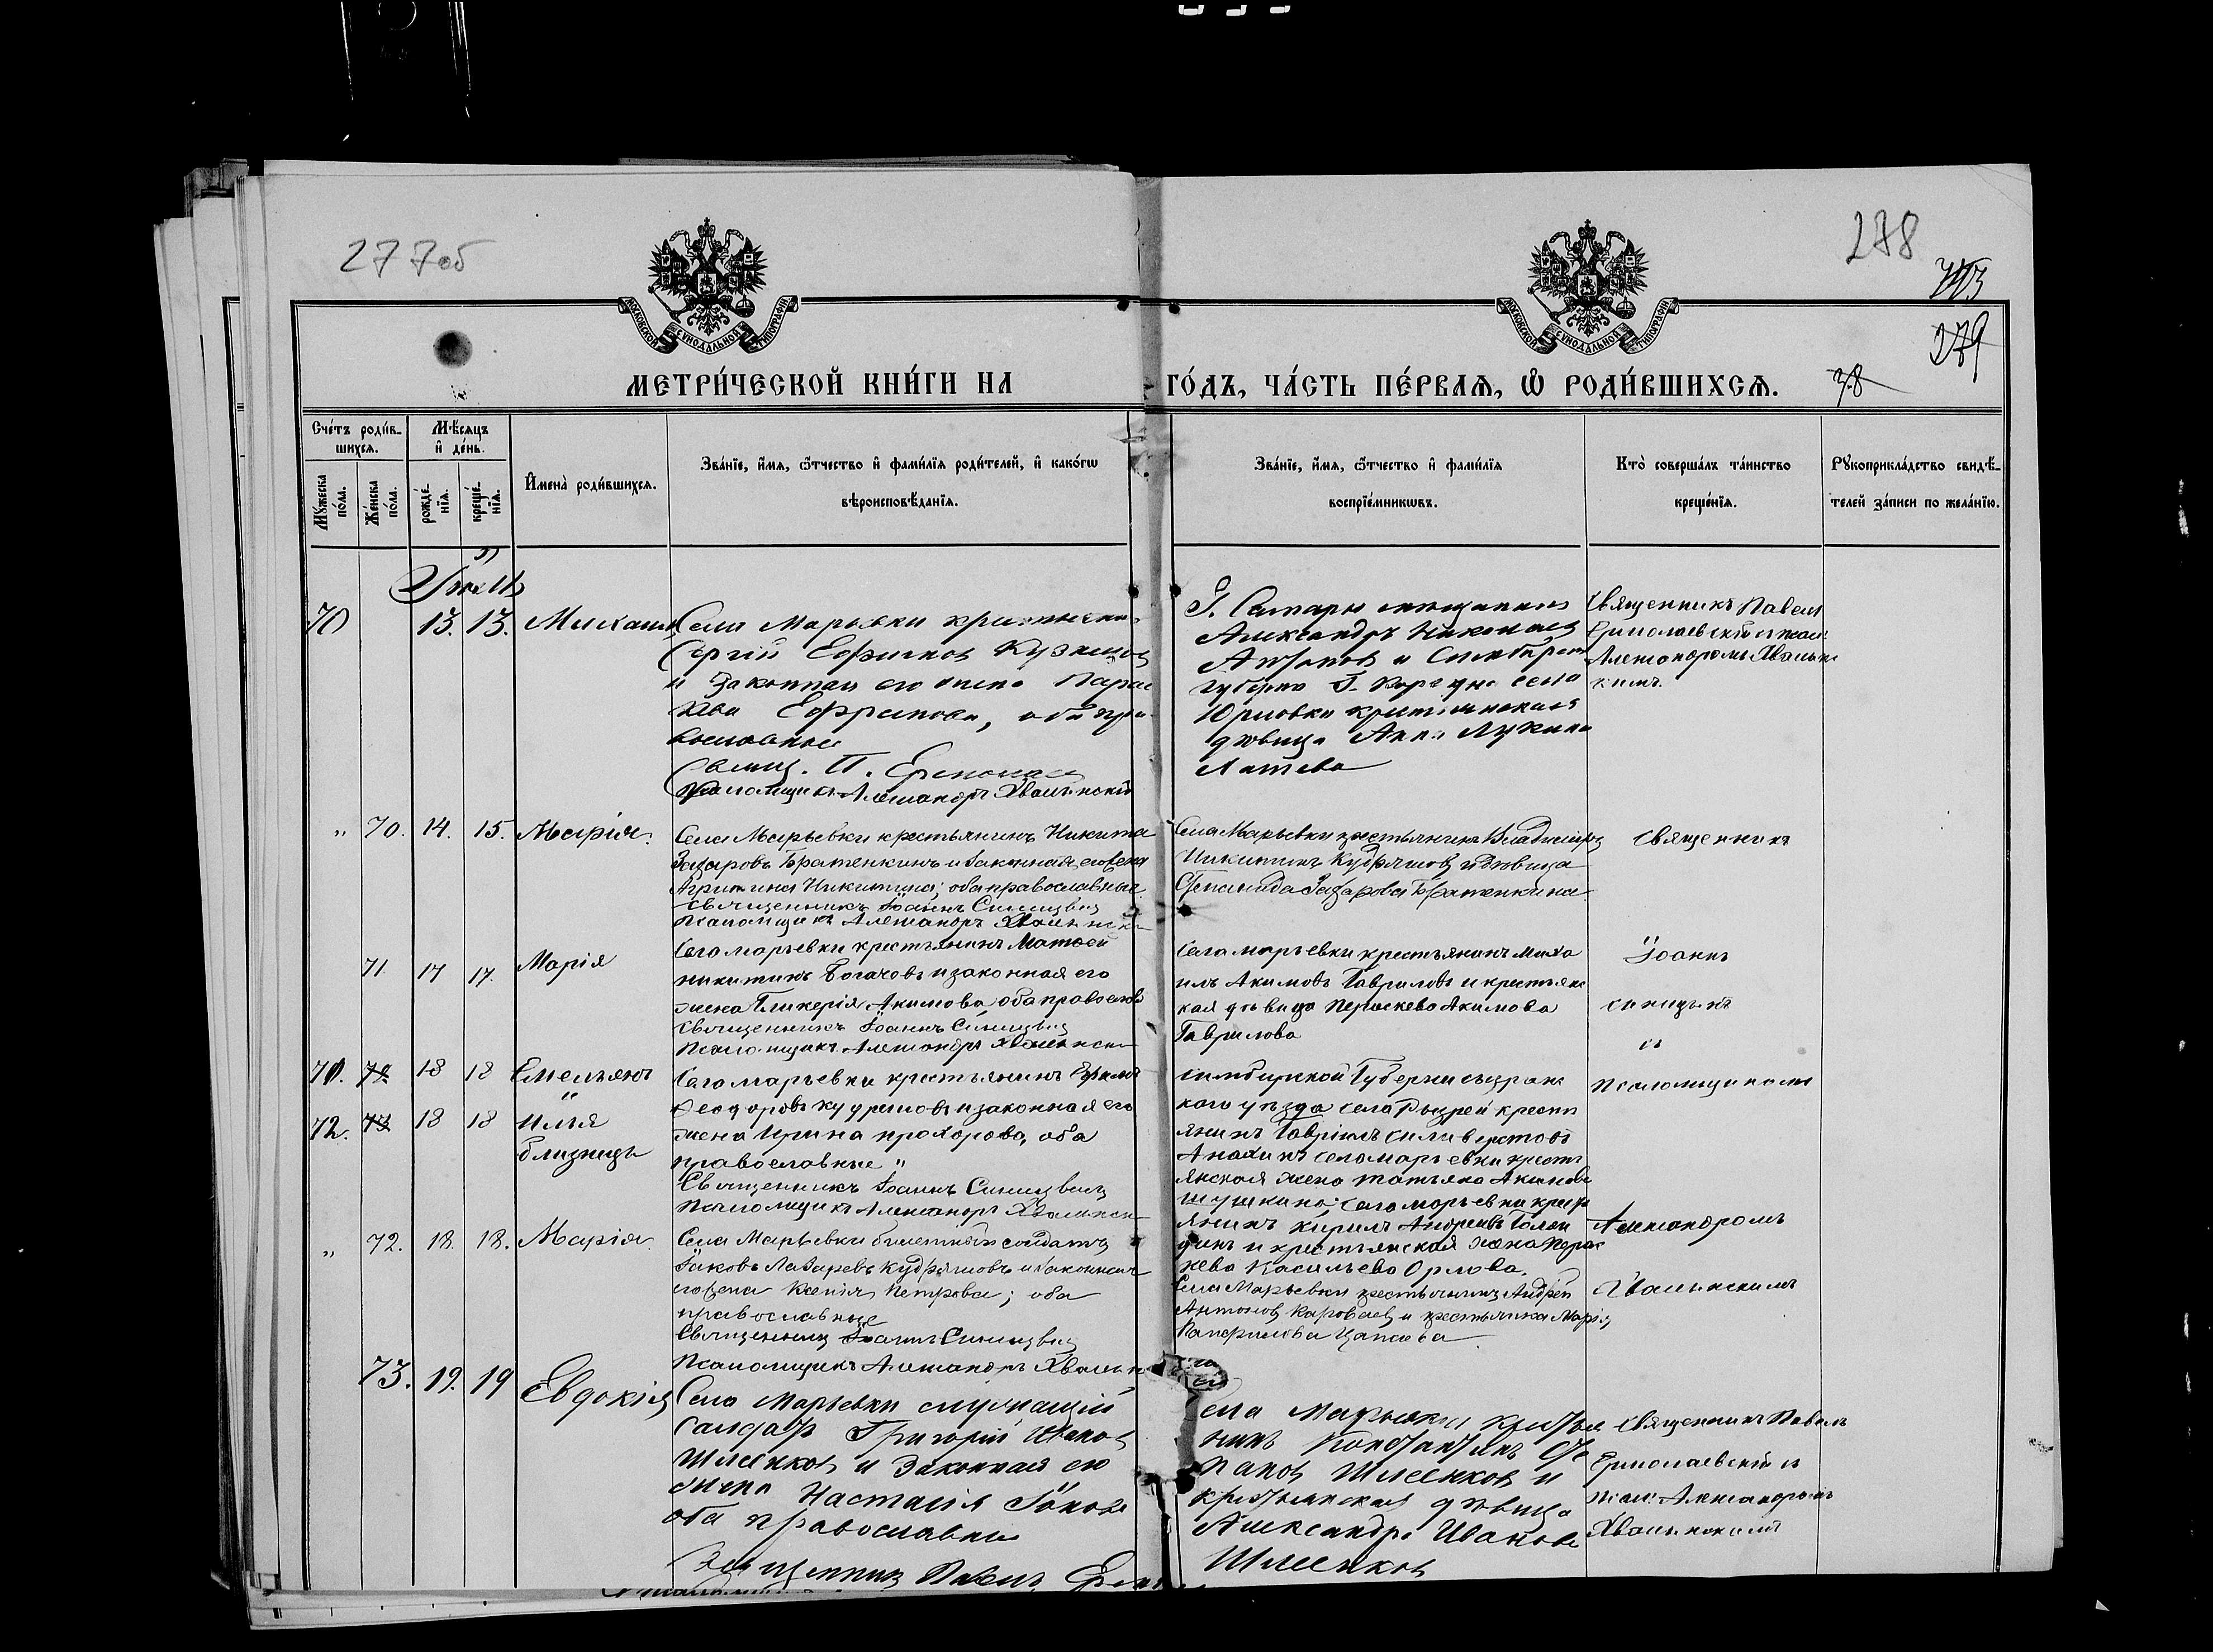 277об
278
279
78
МОСКОВСКОЙ СѴНОДАЛЬНОЙ ТИПОГРАФІИ
МОСКОВСКОЙ СѴНОДАЛЬНОЙ ТИПОГРАФІИ
МЕТРИ́ЧЕСКОЙ КНИ́ГИ НА ГО́ДЪ, ЧА́СТЬ ПЕ́РВАѦ, Ѽ РОДИ́ВШИХСѦ.
Сче́тъ роди́в-
шихсѧ.
Мꙋ́жеска по́ла.
Же́нска по́ла.
Мѣ́сѧцъ
и҆ де́нь.
рожде́-нїѧ.
креще́-нїѧ.
И҆мена̀ роди́вшихсѧ.
Зва́нїе, и҆́мѧ, ѻ҆́тчество и҆ фами́лїѧ роди́телей, и҆ како́гѡ
вѣроисповѣ́данїѧ.
Зва́нїе, и҆́мѧ, ѻ҆́тчество и҆ фами́лїѧ
воспрїе́мникѡвъ.
Кто̀ соверша́лъ та́инство
креще́нїѧ.
Рꙋкоприкла́дство свидѣ́-
телей за́писи по жела́нїю.
70 13. 13. Михаилъ
Села Марьевки крестьянинъ
Сергій Ефимовъ Кузнецов
и законная его жена Парас
кева Ефремова, оба пра
вославные
Свящ. П. Ермолаев
Псаломщикъ Александръ Хвалынскій
Г. Самары мещанинъ
Александръ Николаев
Антонов и Симбирской
губерніи
Юрловки крестьянская
дѣвица Анна Лукина
Лаптева
Священникъ Павелъ
Ермолаевскій с псал.
Александромъ Хвалынс
кимъ.
" 70. 14. 15. Марія.
Села Марьевки крестьянинъ Никита
Захаровъ Братенкинъ и законная его жена
Агрипина Никитина; оба православные
Священникъ Іоаннъ Синицынъ
Псаломщикъ Александръ Хвалынски
Села Марьевки крестьянинъ Владимиръ
Никитинъ Кудряшовъ и дѣвица
Степанида Захарова Братенкина.
Священникъ
71 17 17. Марія
Села марьевки крестьянинъ Матвей
никитинъ Богачовъ и законная его
жена Гликерія Акимова оба православ
Священникъ Іоаннъ Синицынъ
Псаломщикъ Александръ Хвалынски
Села марьевки крестьянинъ Миха
илъ Акимовъ Гавриловъ и крестьянс
кая дѣвица Пераскева Акимова
Гаврилова
Іоаннъ
синицынъ
съ
71. 72 18 18 Емельянъ
72. 73 18 18 илія
близнецы
Села марьевки крестьянинъ Ефимъ
Феодоровъ кудряшовъ и законная его
жена Ирина прохорова, оба
православные "
Священникъ Іоаннъ Синицынъ
Псаломщикъ Александръ Хвалынски
симбирской Губерни сызранс
кого уѣзда села Рызлей крестьянинъ Гавріилъ силиверстовъ
Анахинъ села марьевки кресть
янская жена татьяна Акимова
шушкина; села марьевки крестьянинъ кирилъ Андреевъ Голан
динъ и крестьянская жена Перас
кева Васильева Орлова.
псаломщикомъ
" 72. 18. 18. Марія.
Села Марьевки билетный солдатъ
Іаковъ Лазаревъ Кудряшовъ и законная
его жена Ксенія Петрова; оба
православные
Священникъ Іоаннъ Синицынъ
Псаломщикъ Александръ Хвалын
Села Марьевки крестьянинъ Андрей
Антоновъ Короваевъ и крестьянка Марія
Панфилова Цапкова
Александромъ
Хвалынскимъ
73. 19. 19 Евдокія
Села Марьевки служащій
Салдат Григорій Иванов
Шлеенковъ и законная его
жена Настасія Іонова
оба православны
Священникъ Павелъ Ерм
Села Марьевки крестья
нинъ Константинъ Сте
панов Шлеенковъ и
крестьянская дѣвица
Александра Иванова
Шлеенкова
Священникъ Павелъ
Ермолаевскій съ
псал. Александромъ
Хвалынскимъ